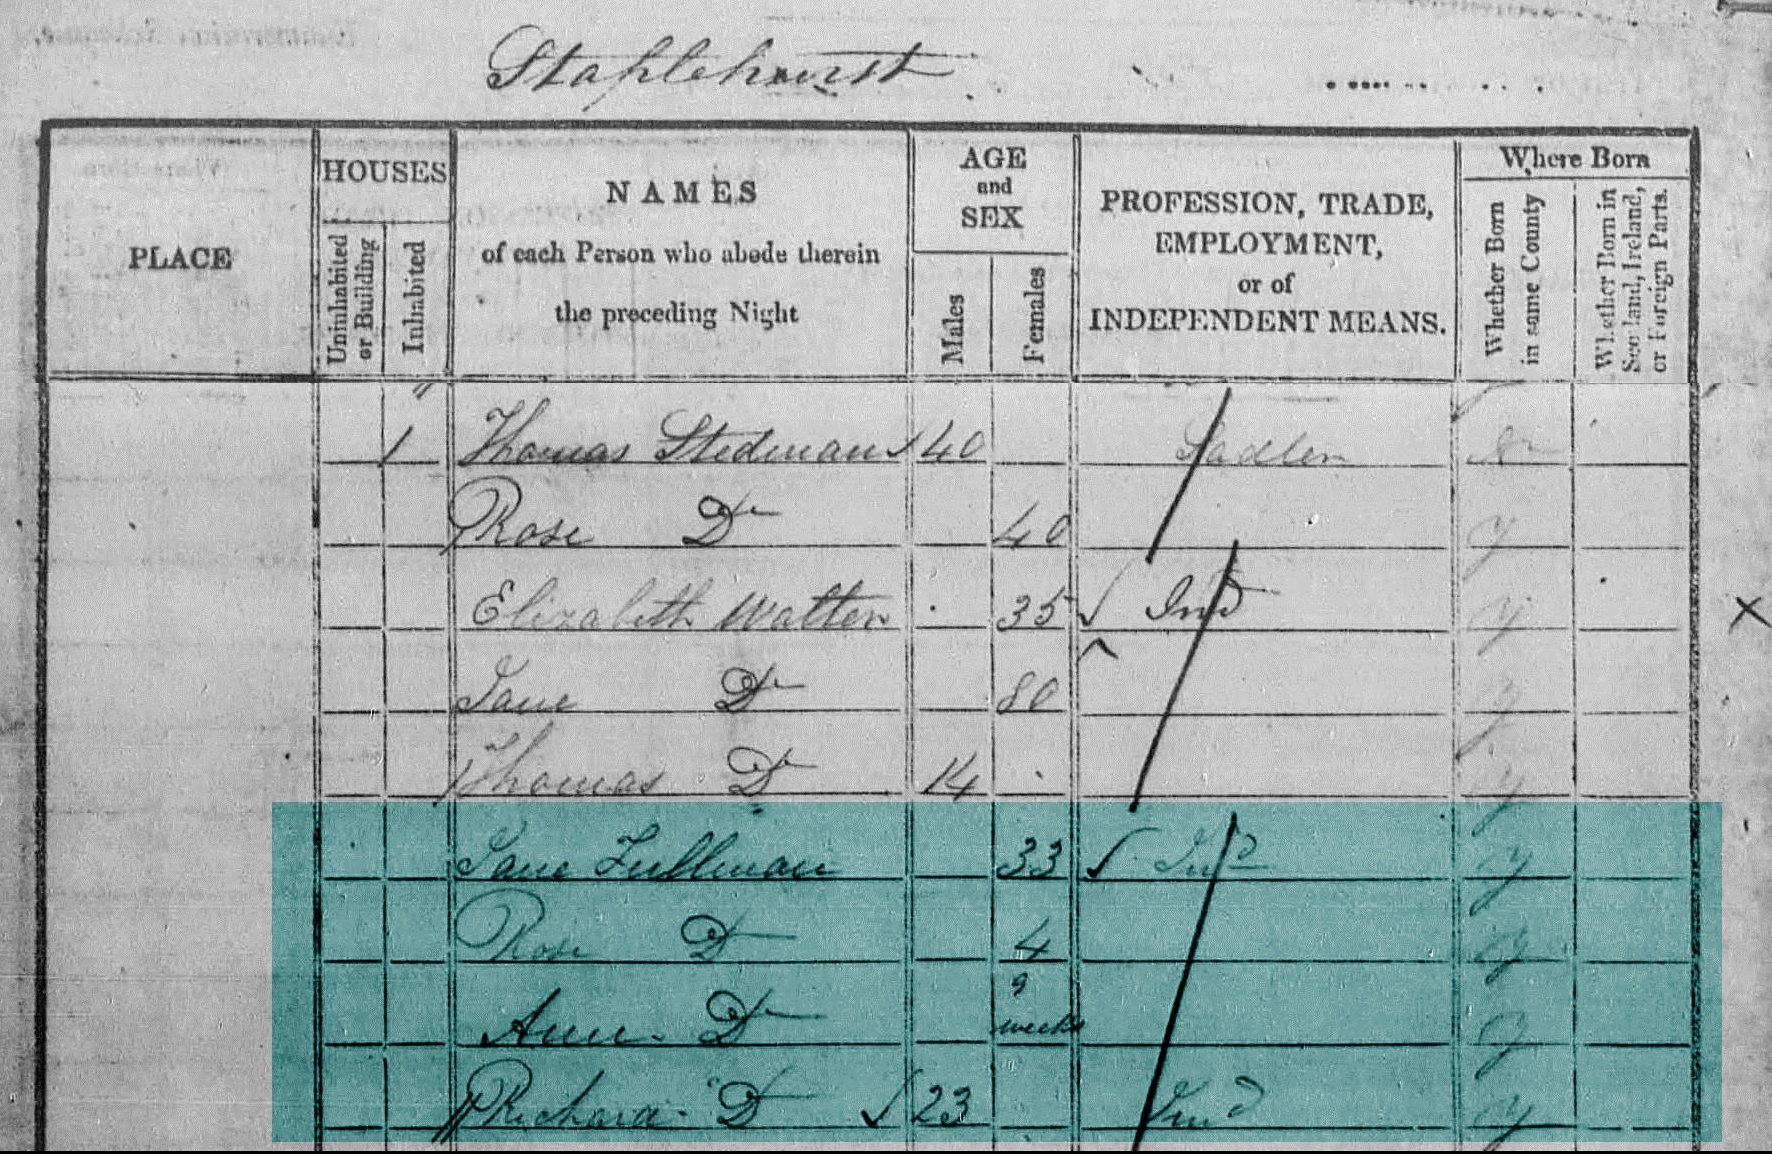 Staplehurst
PLACE
HOUSES
Uninhabited or Building
Inhabited
NAMES
of each Person who abode therein
the preceding Night
AGE
and
SEX
Males
Females
PROFESSION, TRADE,
EMPLOYMENT,
or of
INDEPENDENT MEANS.
Where Born
Whether Born in same County
Whether Born in Scotland, Ireland, or Foreign Parts.
1 Thomas Stedman 40 Sadler
Rose Do 40 y
Elizabeth Walter 35 Ind y
Jane Do 80 y
Thomas Do 14 y
Jane Fullman 33 Ind y
Rose Do 4 y
Ann Do 9 weeks y
Richard Do 23 Ind y